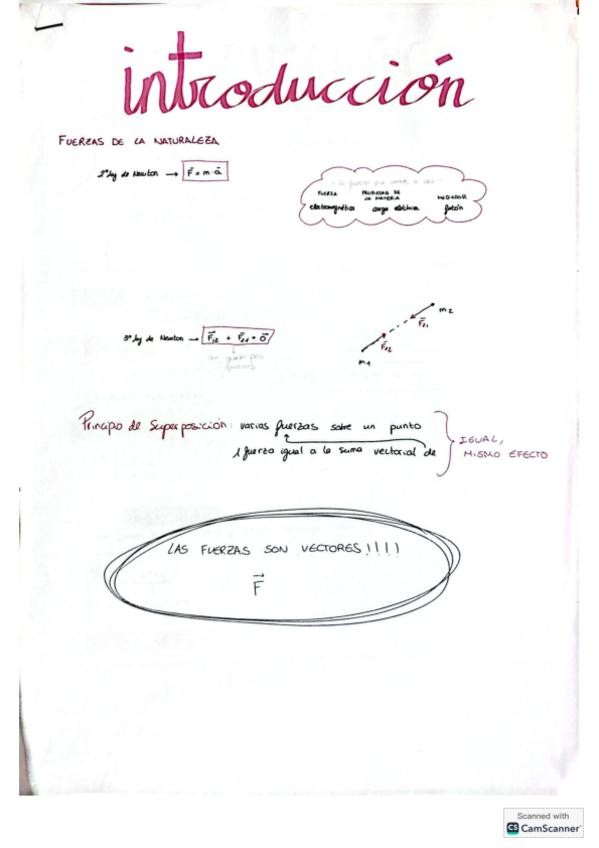 introducción
FUERZAS DE LA NATURALEZA
2ª ley de Newton → F⃗ = m · a⃗
FUERZA PROPIEDAD DE LA MATERIA MEDIADOR
electromagnética carga eléctrica fotón
m2
F⃗21
3ª ley de Newton → F⃗12 + F⃗21 = 0⃗
F⃗12
m1
Principio de Superposición: varias fuerzas sobre un punto
1 fuerza igual a la suma vectorial de
IGUAL,
MISMO EFECTO
LAS FUERZAS SON VECTORES!!!!
F⃗
Scanned with
CS CamScanner